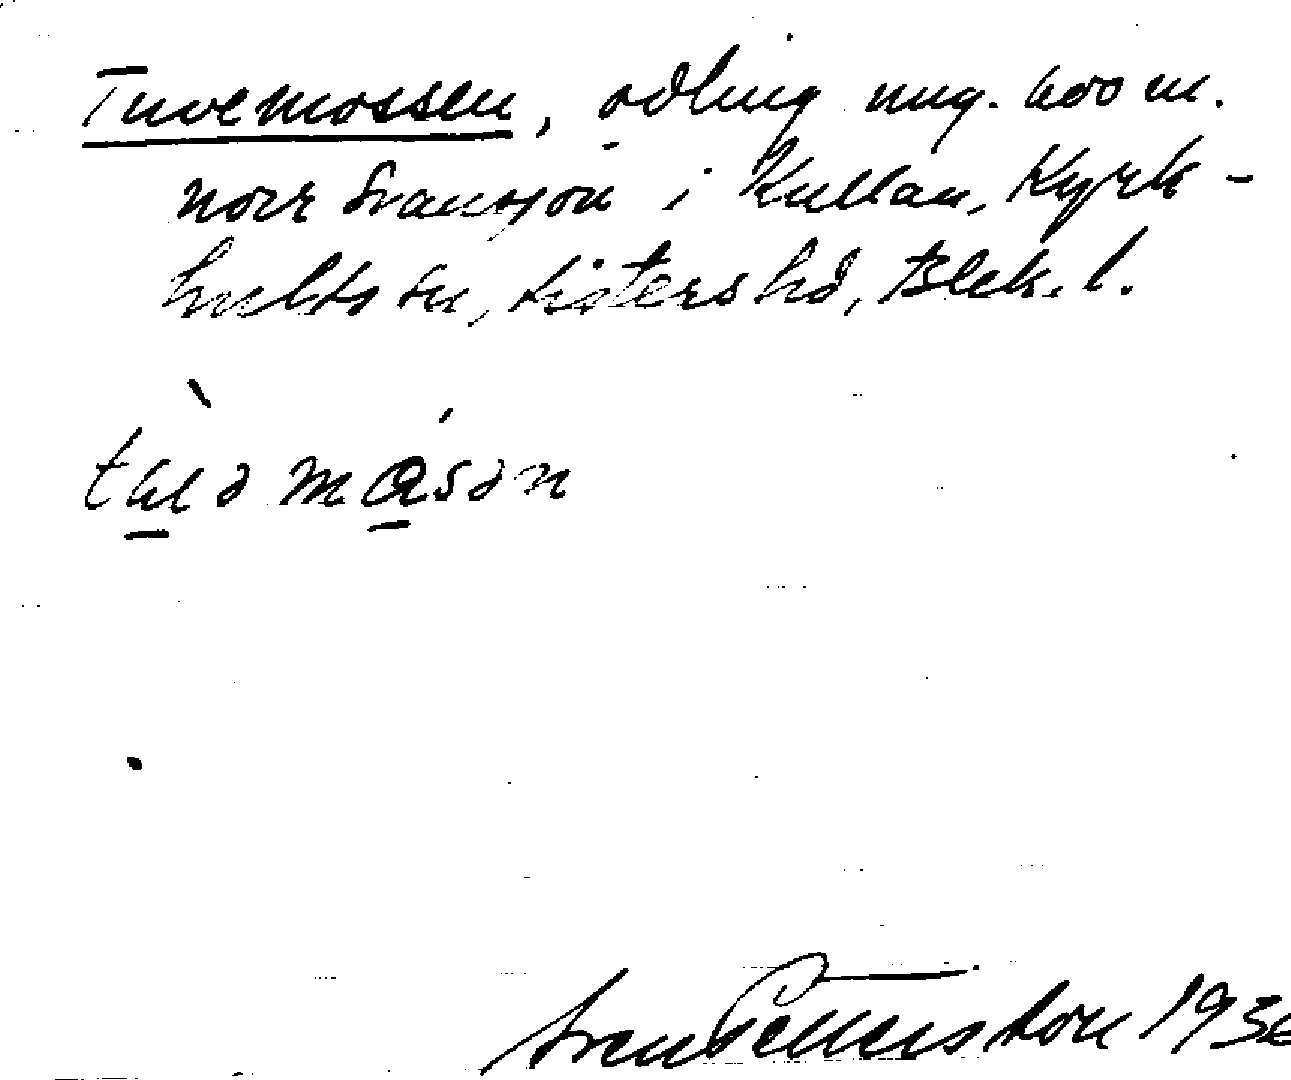 Tuvemossen, odling ung. 600 m.
norr Svansjön i Kullan, Kyrk-
hults sn, Listers hd, Blek. l.
Sven Pettersson 193